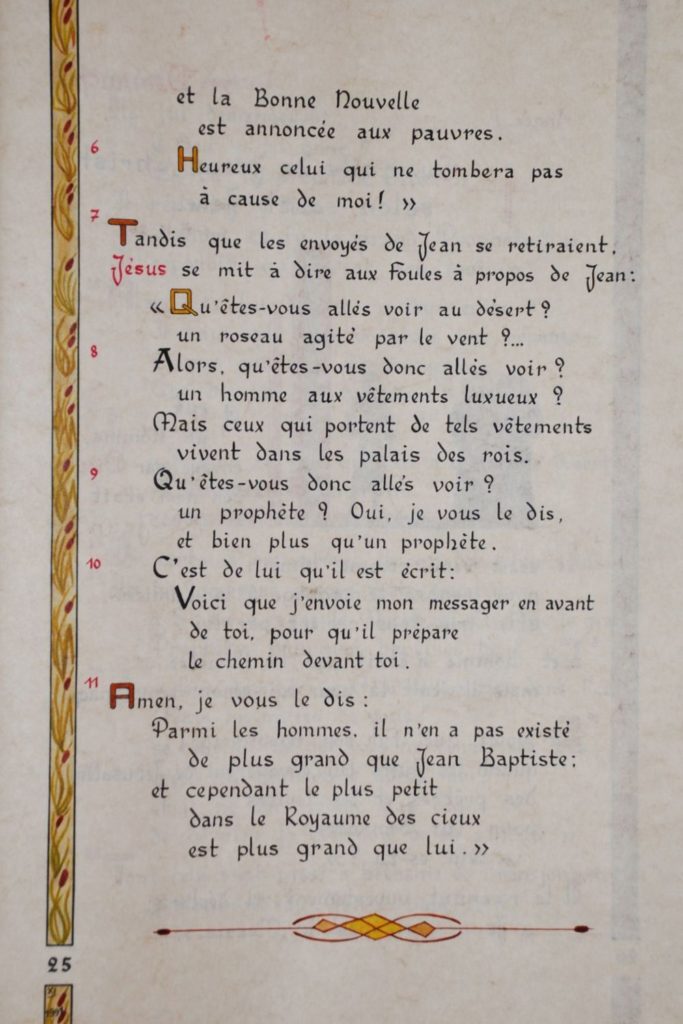 et la Bonne Nouvelle
est annoncée aux pauvres.
6
Heureux celui qui ne tombera pas
à cause de moi! »
7
Tandis que les envoyés de Jean se retiraient,
Jésus se mit à dire aux foules à propos de Jean:
« Qu'êtes-vous allés voir au désert?
un roseau agité par le vent ?...
8
Alors, qu'êtes-vous donc allés voir?
un homme aux vêtements luxueux ?
Mais ceux qui portent de tels vêtements
vivent dans les palais des rois.
9
Qu'êtes-vous donc allés voir ?
un prophète ? Oui, je vous le dis,
et bien plus qu'un prophète.
10
C'est de lui qu'il est écrit:
Voici que j'envoie mon messager en avant
de toi, pour qu'il prépare
le chemin devant toi.
11
Amen, je vous le dis :
Parmi les hommes, il n'en a pas existé
de plus grand que Jean Baptiste;
et cependant le plus petit
dans le Royaume des cieux
est plus grand que lui. »
25
XI